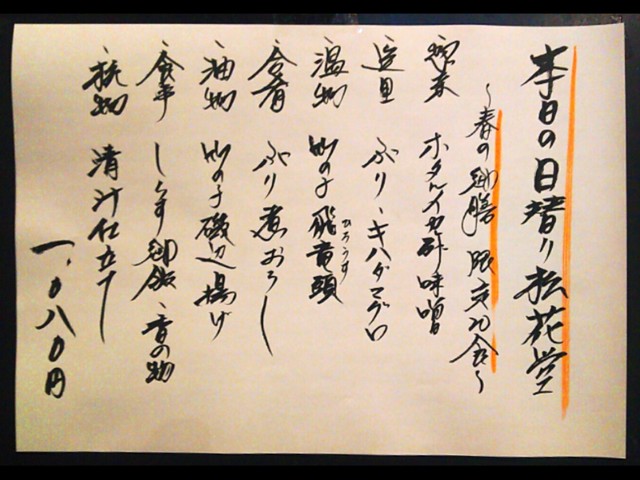 本日の日替り松花堂
～春の御膳 限定20食～
前菜 ホタルイカ酢味噌
造里 ぶり、キハダマグロ
温物 竹の子飛竜頭
ひろうす
合肴 ぶり煮おろし
油物 竹の子磯辺揚げ
食事 しらす御飯、香の物
椀物 清汁仕立て
一、〇八〇円